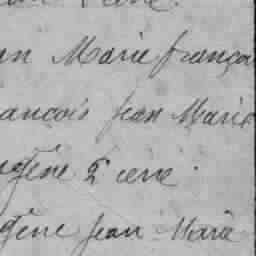 an Marie françoi
ancois jean Marie
gène Pierre.
gène jean Marie